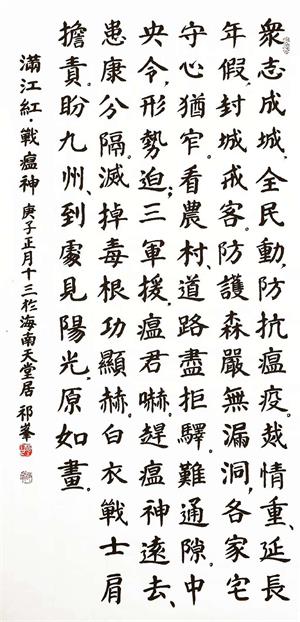 衆志成城,全民動,防抗瘟疫。烖情重、延長
年假,封城戒客。防護森嚴無漏洞,各家宅
守心猶窄。看農村、道路盡拒驛。難通隙。中
央令,形勢迫;三軍援,瘟君嚇。趕瘟神遠去、
患康分隔。滅掉毒根功顯赫。白衣戰士肩
擔責。盼九州、到處見陽光,原如畫。
滿江紅·戰瘟神 庚子正月十三於海南天堂居 祁峯